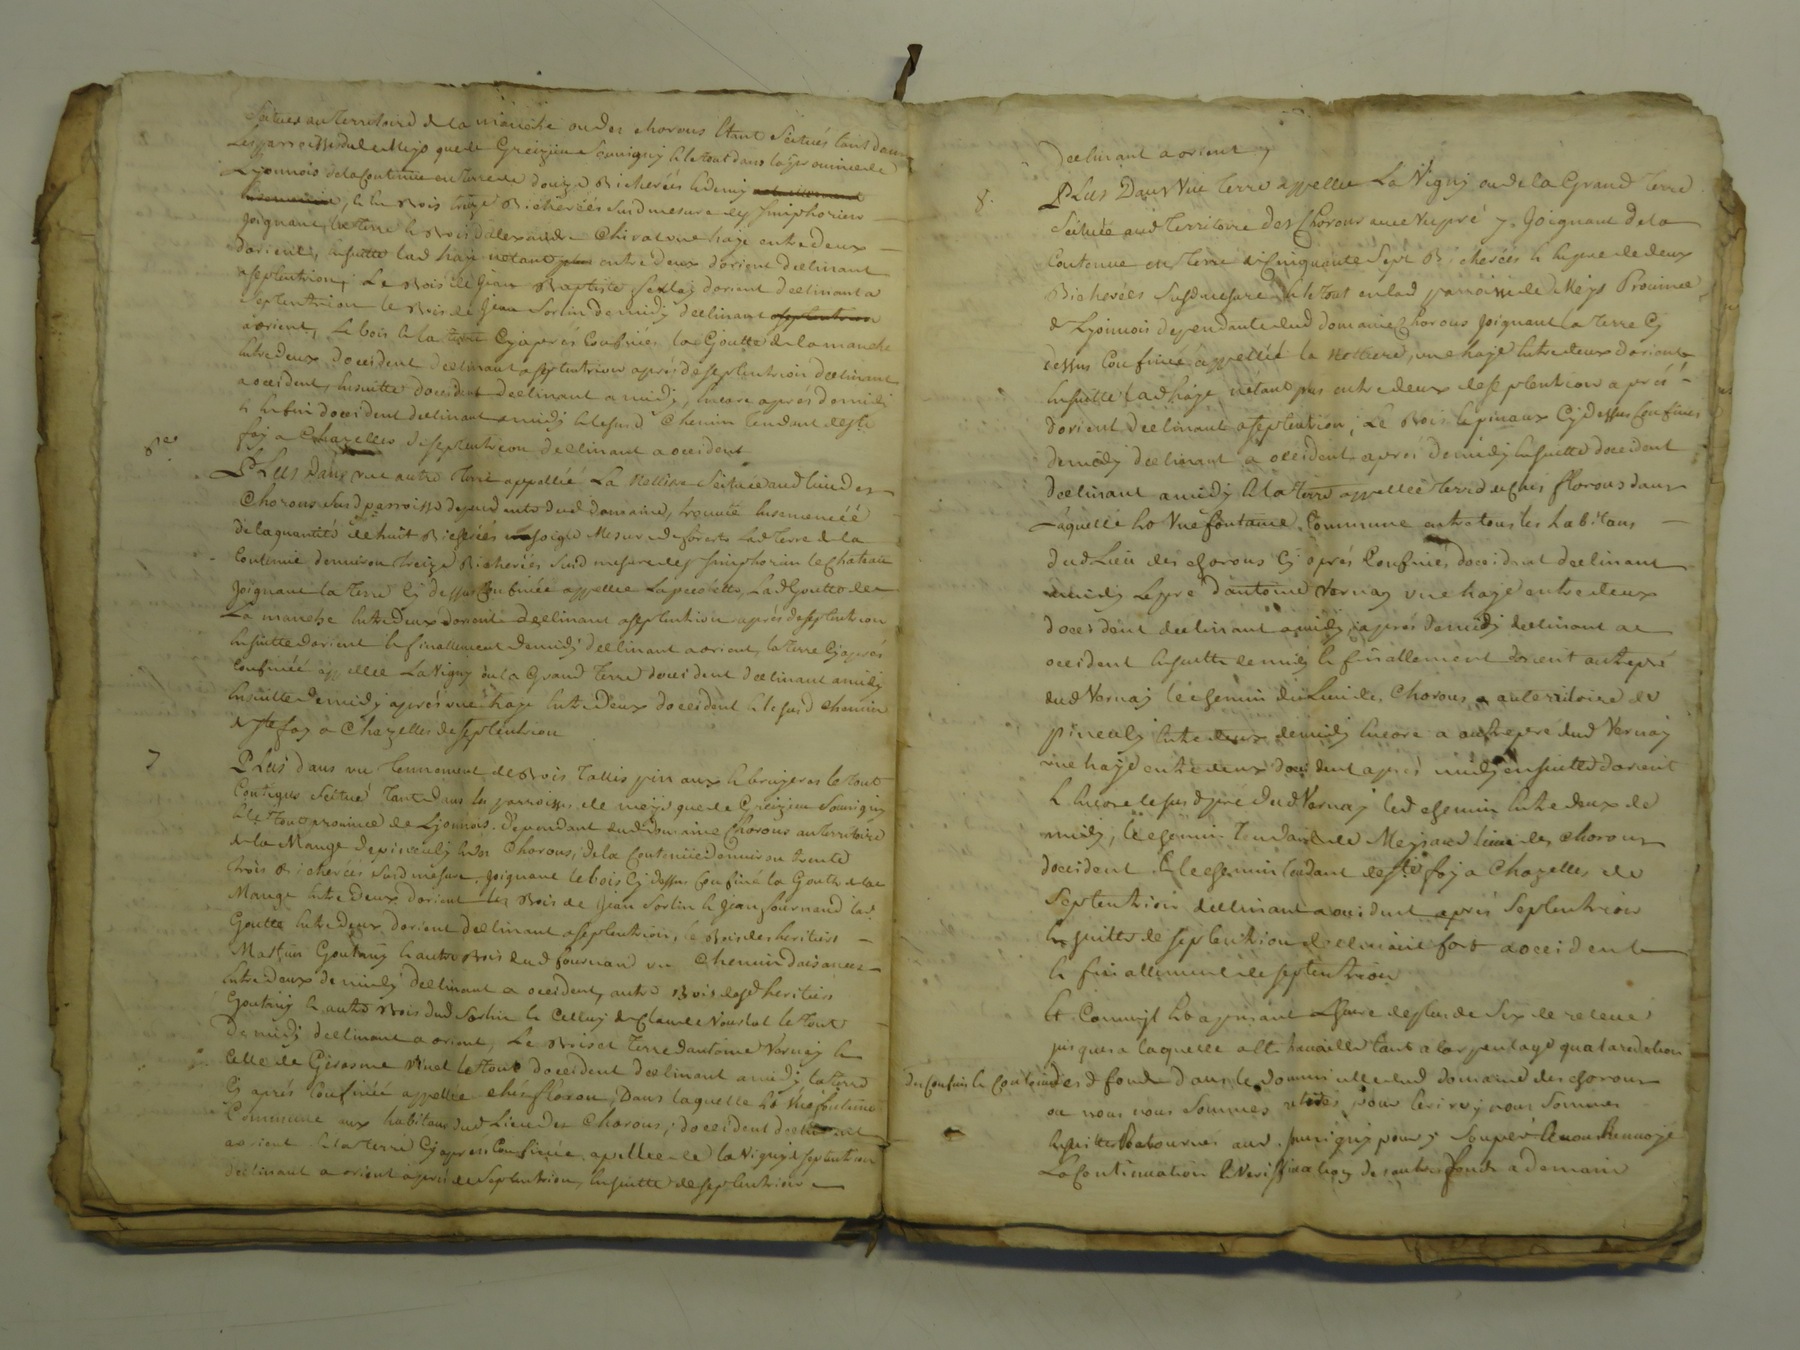 Scituez au Territoire de la manche ou des chorous Etant Scitués tant dans
Les parroisses de Meys que de Greizieu Souvigny & le tout dans la province de
Lyonnois de la Contenue en terre de douze Bicherées & demy
& en Bois treize Bicherées Susd mesure de st Simphorien
Joignant, la terre & Bois d'alexandre Chirat une haye entre deux
dorient, ensuitte lad haye n'etant entre deux dorient declinant
a septentrion, Le Bois de Jean Baptiste dorient declinant a
Septentrion le Bois de Jean Sorlin de midy declinant
a orient, Le bois & la terre Cy après Confinés la Goutte de la manche
entre deux doccident declinant a septentrion après de septentrion declinant
a occident, ensuitte doccident declinant a midy, encore après de midy
& enfin doccident declinant a midy & le susd Chemin Tendant de ste
foy a Chazelles de septentrion declinant a occident
6e
Plus Dans une autre Terre appellée La Scituée aud lieu des
Chorous Susd parroisse dependante dud Domaine, trouvée ensemencée
de la quantité de huit Bicherées Seigle Mesure de forests Lad Terre de la
Contenue denviron treize Bicherées Susd mesure de st Simphorien le Chateau
Joignant la Terre Cy dessus Confinée appellée Lad Goutte de
La manche entre Deux dorient declinant a septentrion après de septentrion
ensuitte dorient & finallement de midy declinant a orient, la terre Cy après
Confinée appellée La Vigny ou la Grand Terre doccident declinant a midy
ensuitte de midy après une haye entre Deux doccident & le susd chemin
de ste foy a Chazelles de septentrion
7
Plus dans un Tennement de Bois Taillis pinaux & bruyeres le tout
Contigus Scitué Tant Dans les parroisses de meys que de Greizieu Souvigny
& le tout province de Lyonnois. dependant dud Domaine Chorous au Territoire
de la Mange de & des Chorous, de la Contenüe denviron trente
trois Bicherées Susd mesure, Joignant le bois Cy dessus Confiné la Goutte de la
Mange entre Deux dorient les Bois de Jean Sorlin & Jean fournand lad
Goutte entre Deux dorient declinant a septentrion, le Bois des heritiers
Mathieu Goutany & autre Bois dud fournand un Chemin daisances
entre Deux de midy declinant a occident, autre Bois desd heritiers
Goutany & autre Bois dud Sorlin & Celluy de Claude le Tout
De midy declinant a orient, Le Bois et Terre Dantoine Vernay &
Celle de le Tout doccident declinant a midy, la terre
Cy après Confinée appellée chés floron, Dans laquelle Est une fontaine
Commune aux habitans dud Lieu Des Chorous, doccident declinant
a orient & la terre Cy après Confinée apellée la Vigny de septentrion
declinant a orient après de Septentrion, ensuitte de septentrion
declinant a orient
8.
Plus Dans Une terre appellée La Vigny ou de la Grand Terre
Scituée aud Territoire des Chorous avec un pré y Joignant de la
Contenue en Terre de Cinquante Sept Bicherées & en pré de deux
Bicherées Susd mesure & le tout en lad parroisse de Meys Province
de Lyonnois dependante dud domaine Chorous Joignant la terre Cy
dessus Confinée appellée la une haye entre deux dorient
ensuitte lad haye n'etant pas entre deux de septentrion après
dorient declinant a septentrion, Le Bois & pinaux Cy dessus Confinés
de midy declinant a occident après de midy ensuitte doccident
declinant a midy & la terre appellée terre de chés florous dans
Laquelle Est une fontaine Commune entre tous les habitans
dud Lieu des chorous Cy après Confinés doccident declinant
a midy Le pré dantoine Vernay une haye entre deux
doccident declinant a midy après de midy declinant a
occident ensuitte de midy & finallement dorient autre pré
dud Vernay le chemin du Lieu des Chorous au territoire de
entre deux de midy encore a autre pré dud Vernay
une haye entre deux doccident après midy ensuitte dorient
& encore le susd pré dud Vernay led chemin entre deux de
midy, le chemin Tendant de Meys aud lieu des Chorous
doccident & le chemin tendant de ste foy a Chazelles de
Septentrion declinant a occident après Septentrion
ensuitte de septentrion declinant fort a occident
& finallement de septentrion
Et Comme il Est a present L'heure de plus de Six de relevé
jusques a laquelle a Eté travaillé tant a larpentage qu'a la redaction
des confins & contenues desd fonds Dans le Domicille dud domaine des chorous
ou nous nous Sommes retirés pour nous Sommes
ensuitte Retournés aud Souvigny pour y Souper & avons Renvoyé
La Continuation & Verification des autres fonds a demain